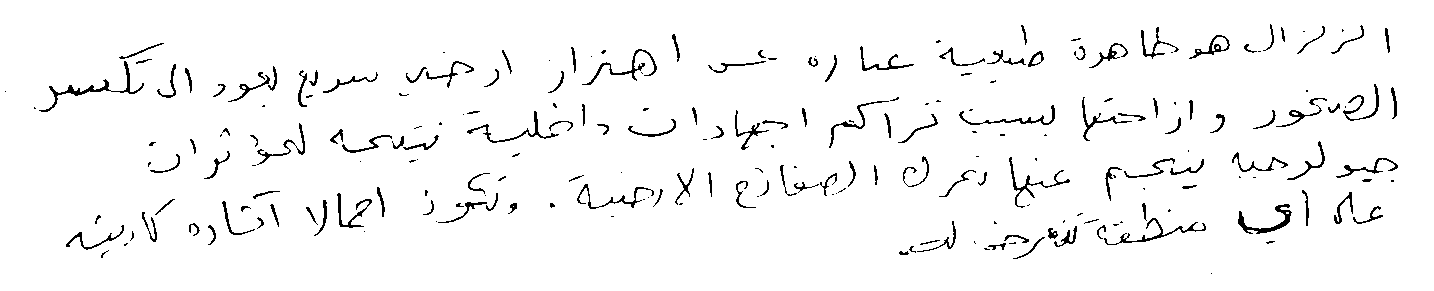 الزلزال هو ظاهرة طبيعية عباره عن اهتزاز ارضي سريع يعود الى تكسر
الصخور وازاحتها بسبب تراكم اجهادات داخلية نتيجه لمؤثرات
جيولوجية ينجم عنها تحرك الصفائح الارضية. وتكون اجمالا آثاره كارثيه
على أي منطقة تتعرض له